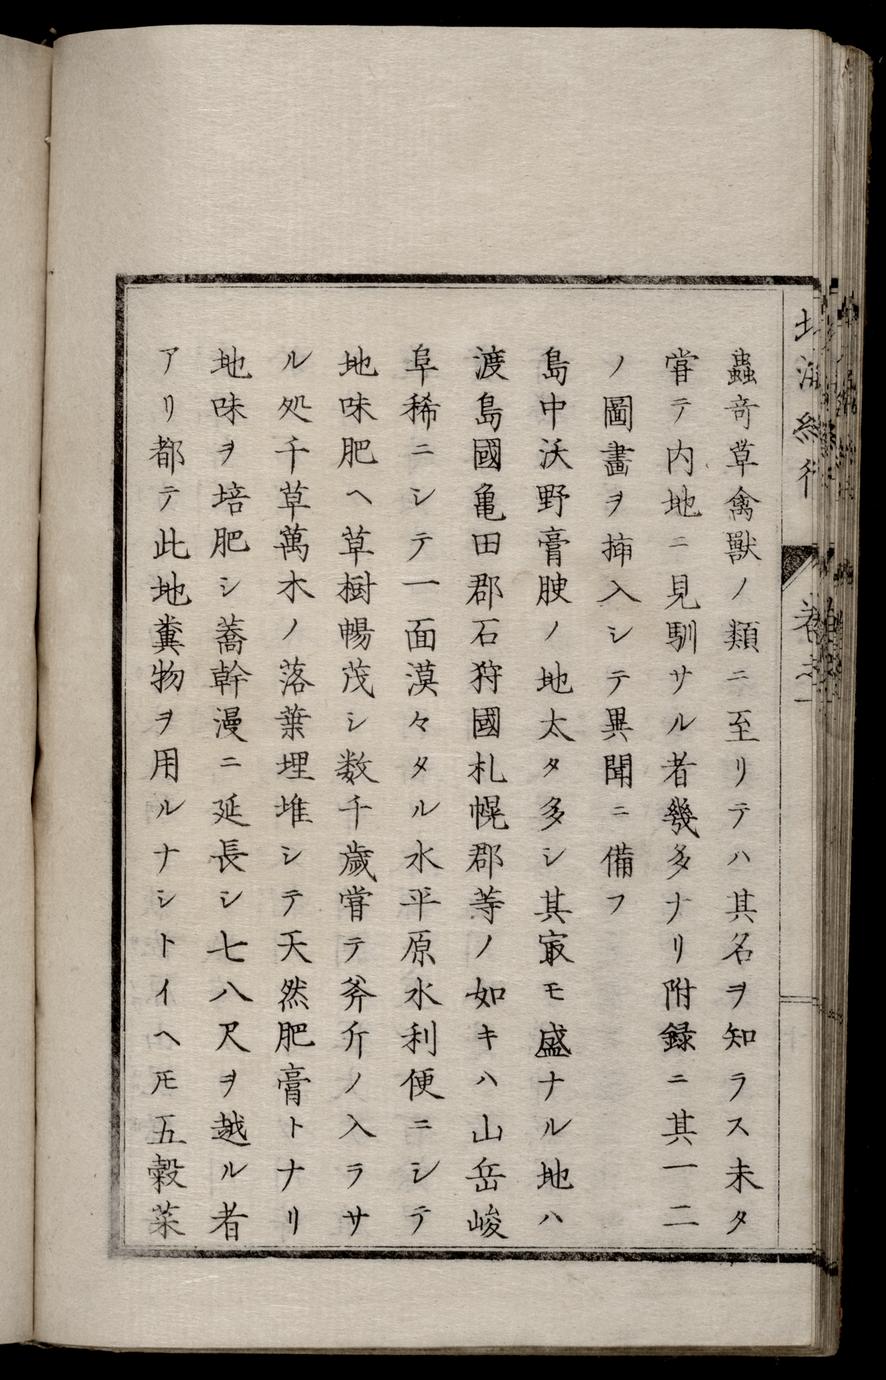 蟲竒草禽獸ノ類ニ至リテハ其名ヲ知ラス未タ
甞テ内地ニ見馴サル者幾多ナリ附録ニ其一二
ノ圖畫ヲ揷入シテ異聞ニ備フ
島中沃野膏腴ノ地太タ多シ其㝡モ盛ナル地ハ
渡島國亀田郡石狩國札幌郡等ノ如キハ山岳峻
阜稀ニシテ一面漠々タル水平原水利便ニシテ
地味肥ヘ草樹暢茂シ数千歳甞テ斧斤ノ入ラサ
ル処千草萬木ノ落葉埋堆シテ天然肥膏トナリ
地味ヲ培肥シ蕎幹漫ニ延長シ七八尺ヲ越ル者
アリ都テ此地糞物ヲ用ルナシトイヘ𪜈五穀菜